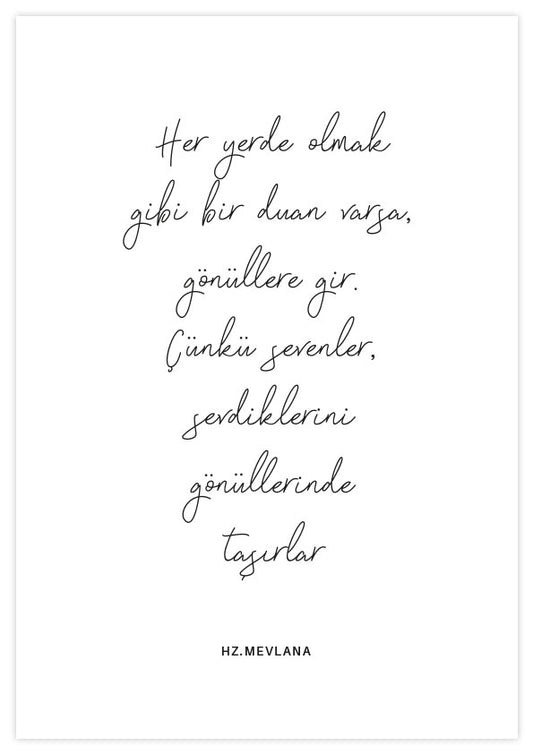 Her yerde olmak
gibi bir duan varsa,
gönüllere gir.
Çünkü sevenler,
sevdiklerini
gönüllerinde
taşırlar
HZ.MEVLANA